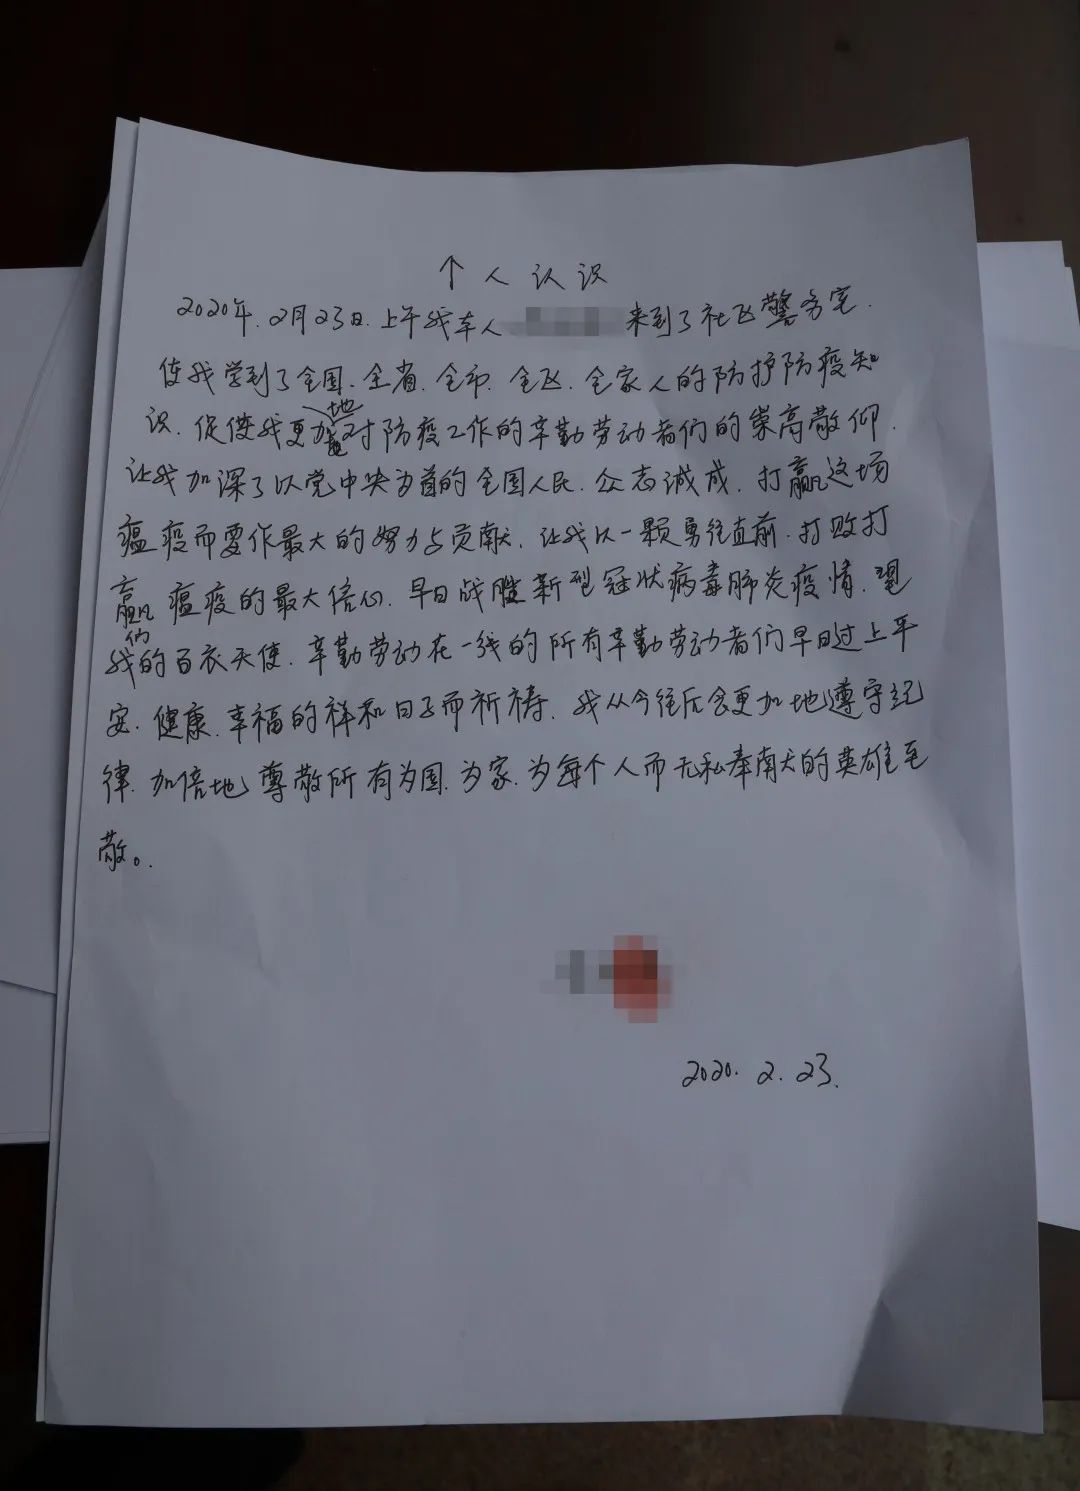 个人认识
2020年.2月23日.上午我本人 来到了社区警务室.
使我学到了全国.全省.全市.全区.全家人的防护防疫知
识.促使我更加地对防疫工作的辛勤劳动者们的崇高敬仰.
让我加深了以党中央为首的全国人民.众志诚成.打赢这场
瘟疫而要作最大的努力与贡献.让我以一颗勇往直前.打败打
赢瘟疫的最大信心.早日战胜新型冠状病毒肺炎疫情.望
我们的百衣天使.辛勤劳动在一线的所有辛勤劳动者们早日过上平
安.健康.幸福的祥和日子而祈祷.我从今往后会更加地遵守纪
律.加倍地尊敬所有为国.为家.为每个人而无私奉南犬的英雄至
敬。.
2020.2.23.